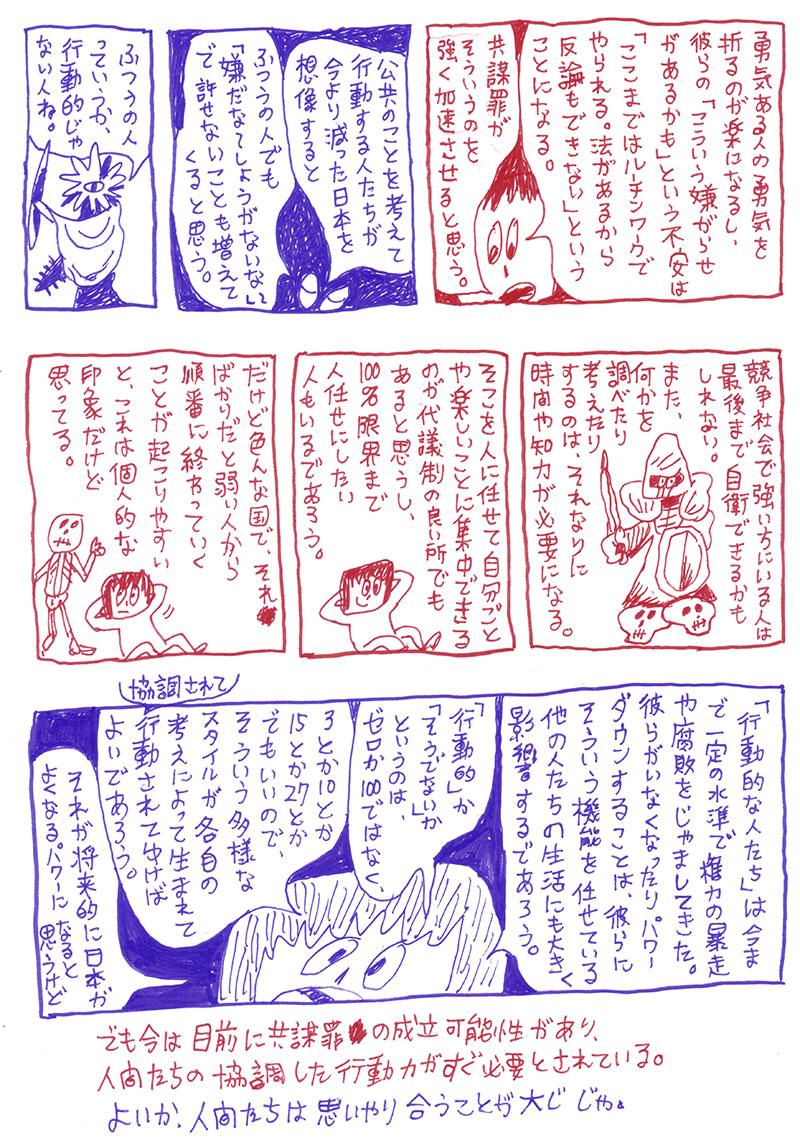 勇気ある人の勇気を
折るのが楽になるし、
彼らの「こういう嫌がらせ
があるかも」という不安は
「ここまではルーチンワークで
やられる。法があるから
反論もできない」という
ことになる。
共謀罪が
そういうのを
強く加速させると思う。
公共のことを考えて
行動する人たちが
今より減った日本を
想像すると
ふつうの人でも
「嫌だな〜しょうがないな」
で許せないことも増えて
くると思う。
ふつうの人
っていうか、
行動的じゃ
ない人ね。
競争社会で強い方にいる人は
最後まで自衛できるかも
しれない。
また、
何かを
調べたり
考えたり
するのは、それなりに
時間や知力が必要になる。
そこを人に任せて自分ごと
や楽しいことに集中できる
のが代議制の良い所でも
あると思うし、
100%限界まで
人任せにしたい
人もいるであろう。
だけど色んな国で、それ
ばかりだと弱い人から
順番に終わっていく
ことが起こりやすい
と、これは個人的な
印象だけど
思ってる。
「行動的な人たち」は今ま
で一定の水準で権力の暴走
や腐敗をじゃましてきた。
彼らがいなくなったりパワー
ダウンすることは、彼らに
そういう機能を任せている
他の人たちの生活にも大きく
影響するであろう。
「行動的」か
「そうでないか」
というのは、
ゼロか100ではなく、
3とか10とか
15とか27とか
でもいいので、
そういう多様な
スタイルが各自の
考えによって生まれて
協調されて
行動されてゆけば
よいであろう。
それが将来的に日本が
よくなるパワーになると
思うけど
でも今は目前に共謀罪の成立可能性があり、
人間たちの協調した行動力がすぐ必要とされている。
よいか、人間たちは思いやり合うことが大じじゃ。